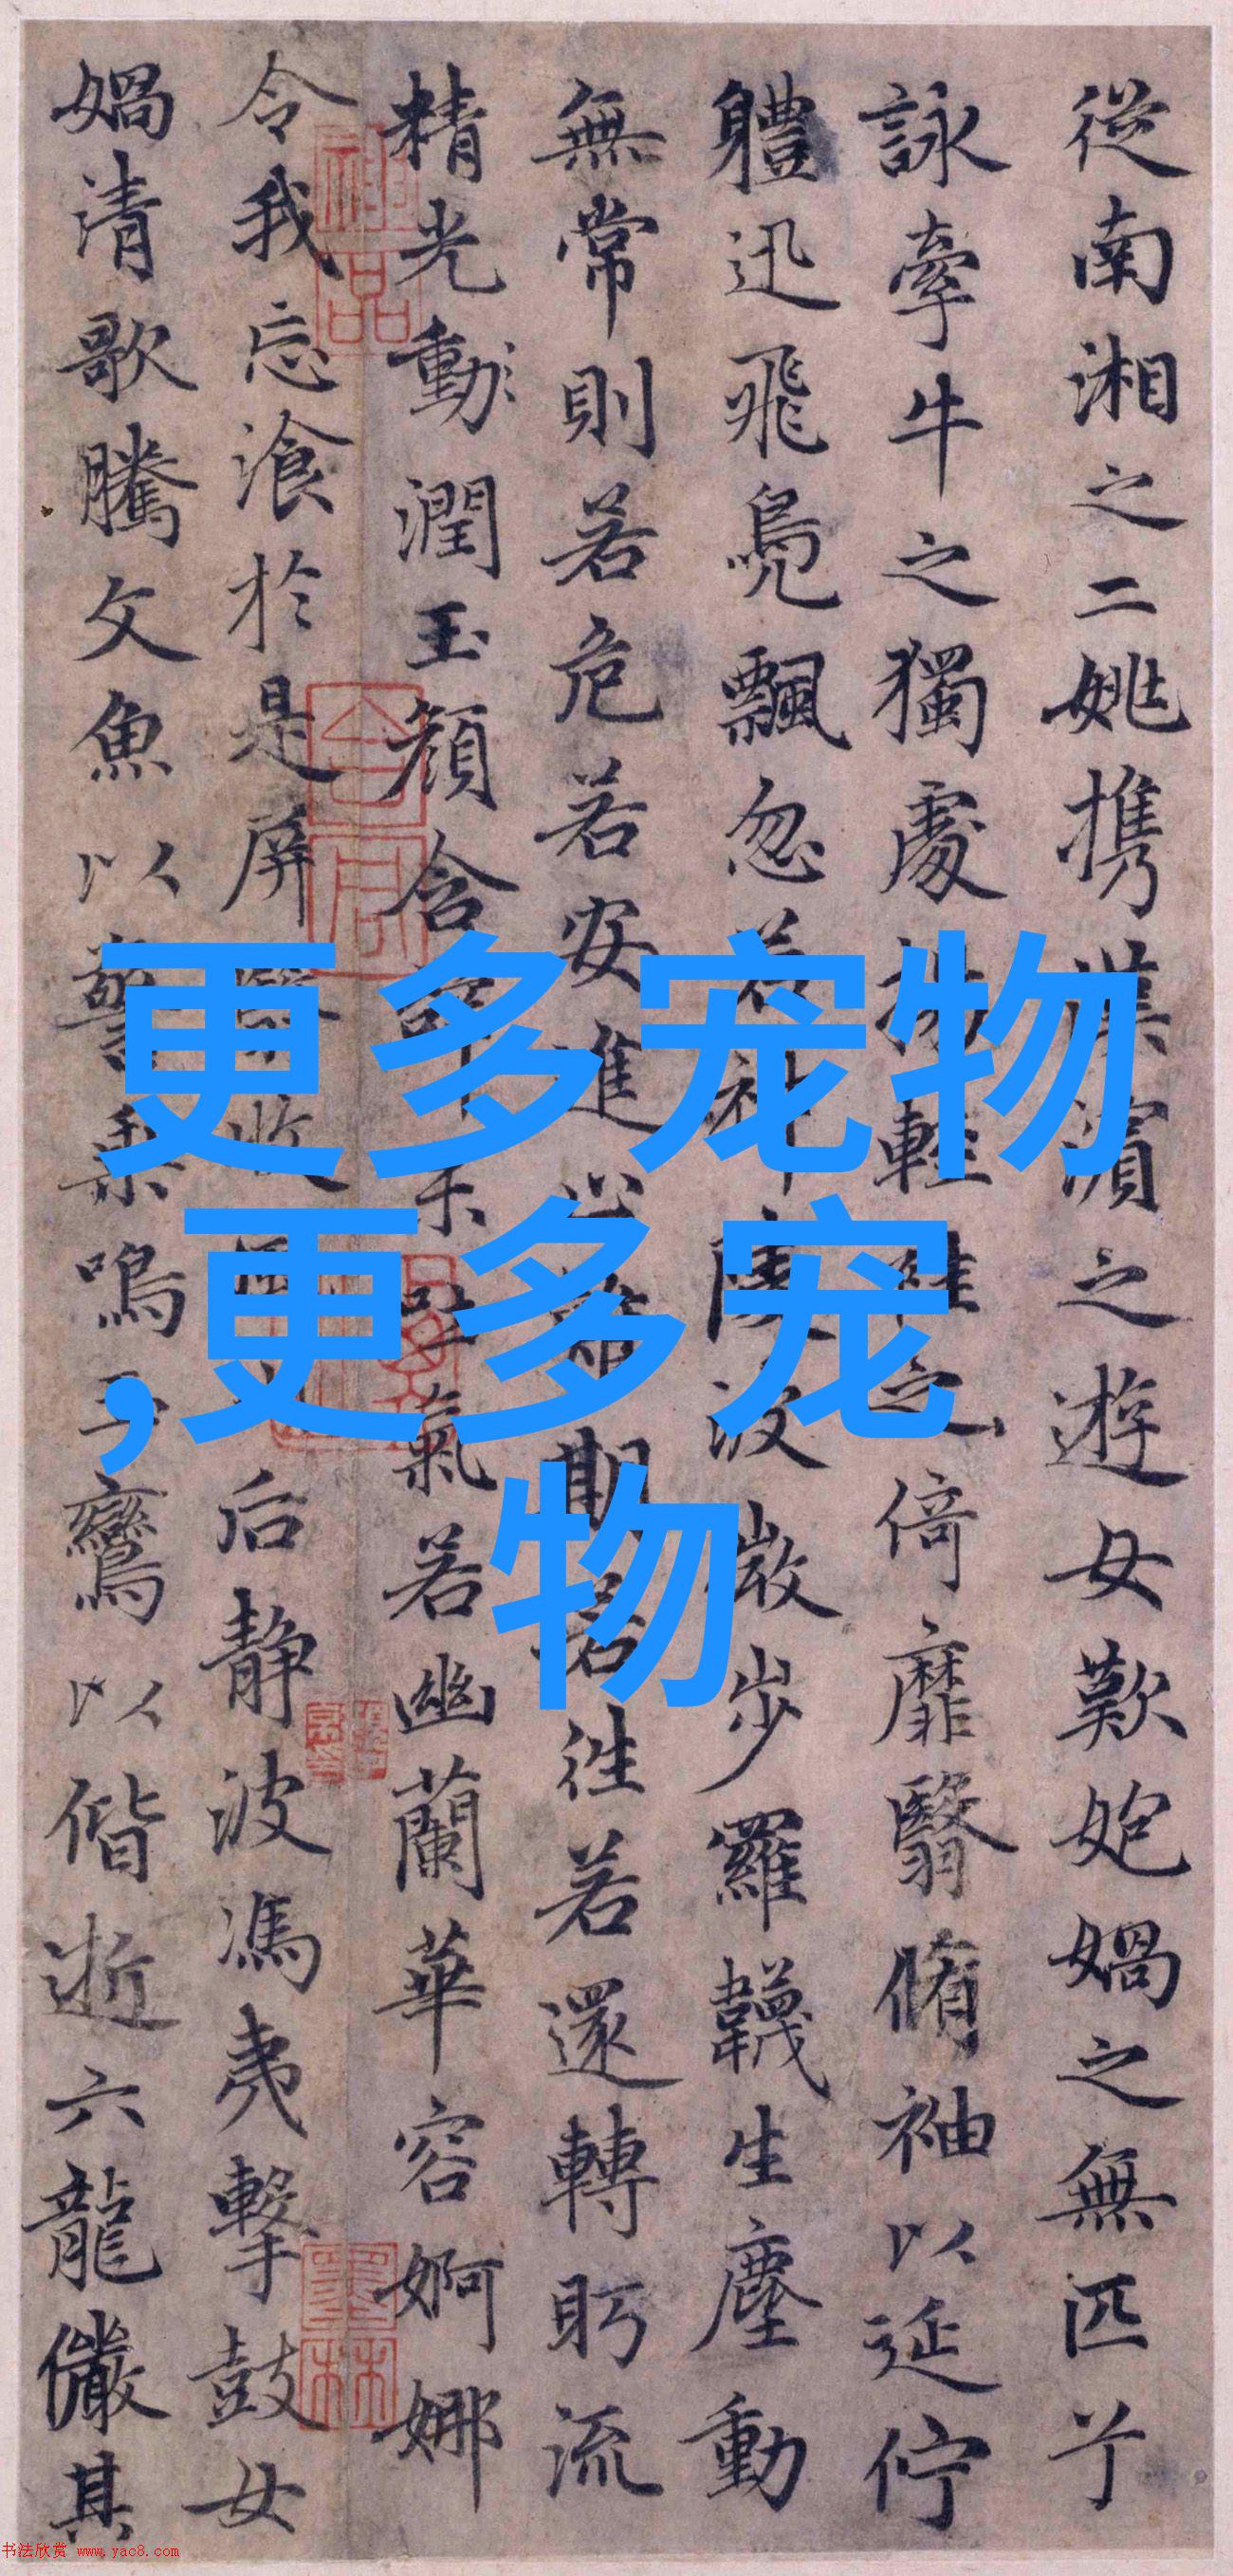 從南湘之二姚携漢濱之遊女歎匏媧之無匹兮
詠牽牛之獨處揚輕袿之倚靡翳脩袖以延佇
軆迅飛鳧飄忽若神陵波微步羅韈生塵動
無常則若危若安進止難期若往若還轉眄流
精光動潤玉顔含辭未吐氣若幽蘭華容婀娜
令我忘飡於是屏翳收風川后静波馮夷擊鼓女
媧清歌騰文魚以警乗鳴玉鸞以偕逝六龍儼其
更多宠物
,更多宠
物
书法欣赏 www.yac8.com